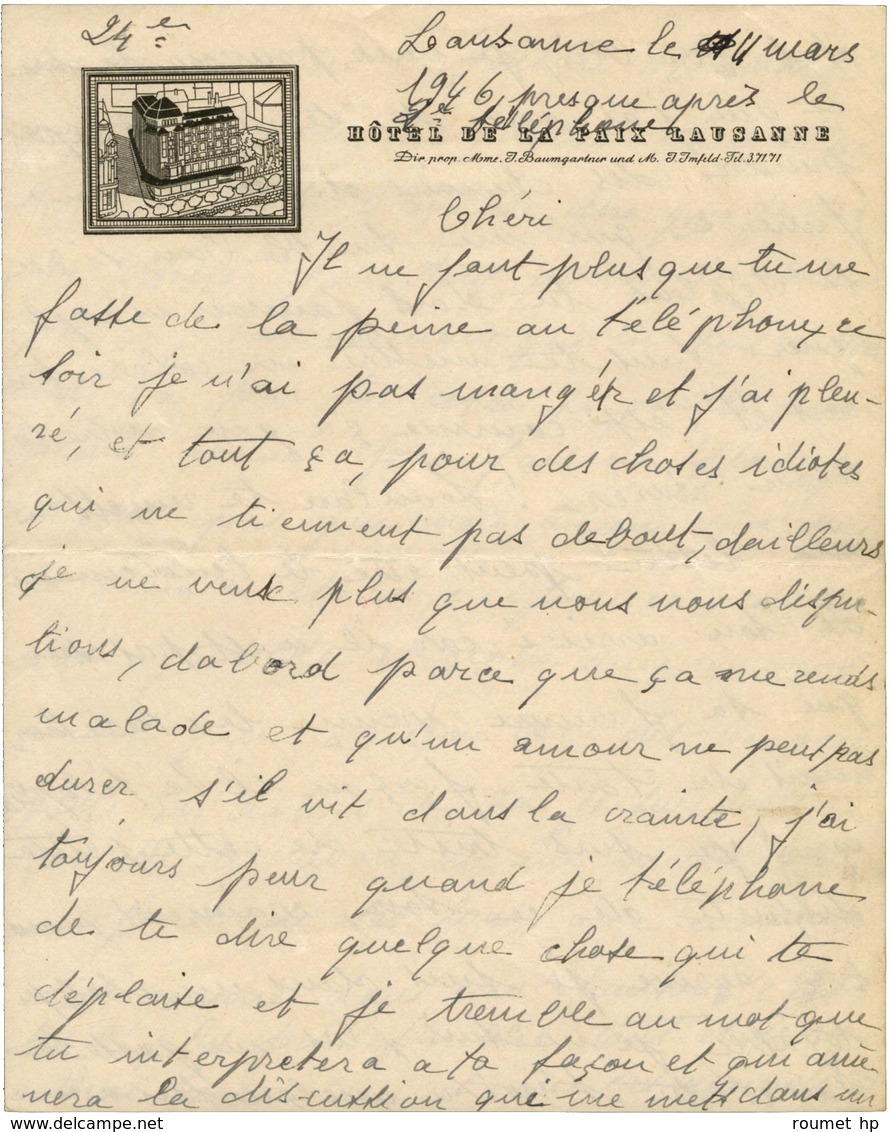 24e
Lausanne le 11 mars
1946, presque après le
2e téléphone
HÔTEL DE LA PAIX LAUSANNE
Dir. prop. Mme. J. Baumgartner und M. J. Imfeld-Tel. 3.71.71
Chéri
Il ne faut plus que tu me
fasse de la peine au téléphone, ce
soir je n'ai pas mangér et j'ai pleu-
ré, et tout ça, pour des choses idiotes
qui ne tiennent pas debout, dailleurs
je ne veux plus que nous nous dispu-
tions, dabord parce que ça me rends
malade et qu'un amour ne peut pas
durer s'il vit dans la crainte, j'ai
toujours peur quand je téléphone
de te dire quelque chose qui te
déplaise et je tremble au mot que
tu interpretera a ta façon et qui amè-
nera la discussion qui me mets dans un
© roumet hp